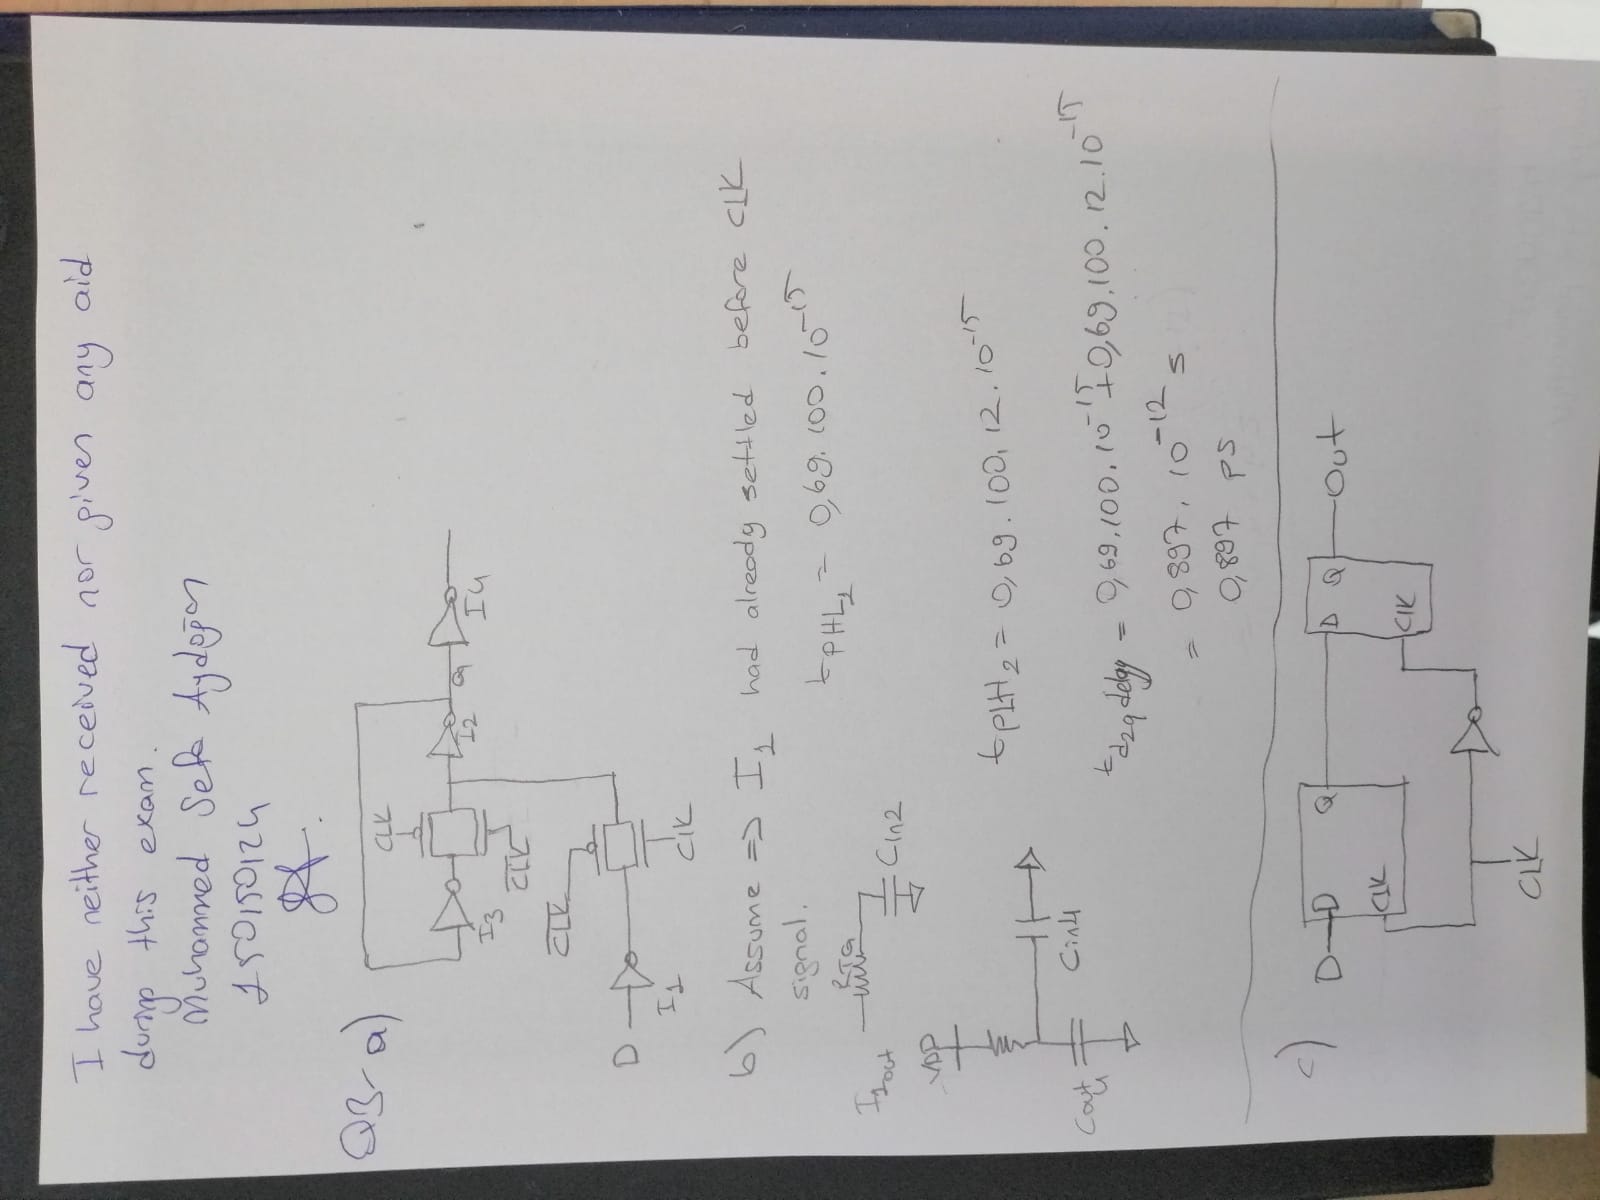 I have neither received nor given any aid
during this exam.
Muhammed Sefa Aydoğan
150150124
Q3- a)
CLK
I3
I2
q
I4
CLK
CLK
D
I1
CLK
b) Assume => I1 had already settled before CLK
signal.
tPHL1 = 0,69.100.10^-15
RTG
I1out
Cin2
VDD
tPLH2 = 0,69.100.12.10^-15
Cin4
Cout4
td2q delay = 0,69.100.10^-15 + 0,69.100.12.10^-15
= 0,897.10^-12 s
0,897 ps
c)
D D Q D Q Out
CLK
CLK
CLK